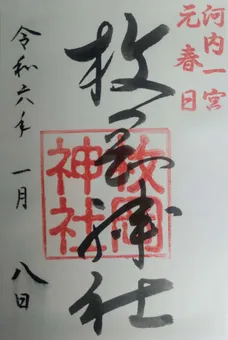 河内一宮
元春日
枚岡神社
枚岡神社
令和六年 一月 八日